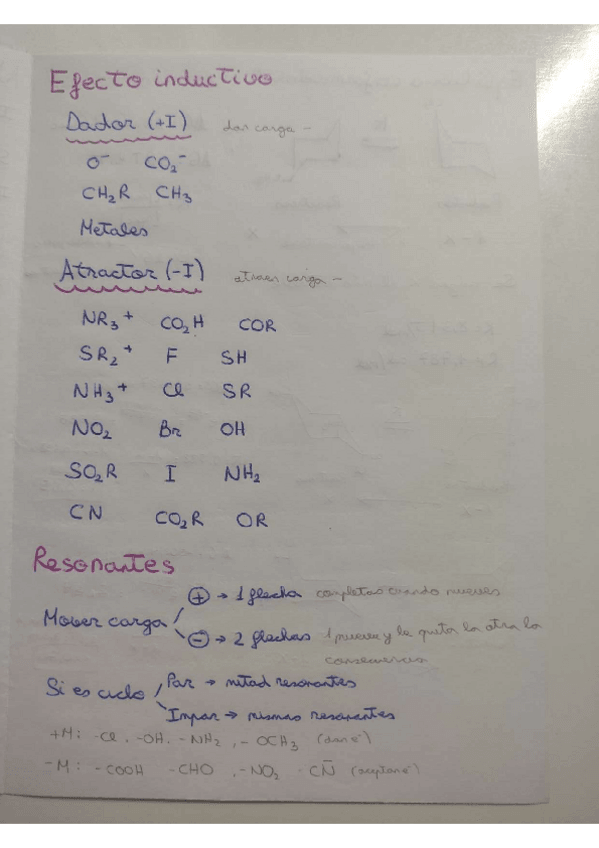 Efecto inductivo
Dador (+I) dar carga -
O⁻ CO₂⁻
CH₂R CH₃
Metales
Atractor (-I) atraer carga -
NR₃⁺ CO₂H COR
SR₂⁺ F SH
NH₃⁺ Cl SR
NO₂ Br OH
SO₂R I NH₂
CN CO₂R OR
Resonantes
Mover carga
⊕ → 1 flecha completas cuando mueves
⊖ → 2 flechas 1 mueve y le quita la otra la
Si es ciclo
Par → mitad resonantes
Impar → mismas resonantes
+M: -Cl, -OH, -NH₂, -OCH₃ (dan e⁻)
-M: -COOH -CHO, -NO₂ -CN (aceptan e⁻)